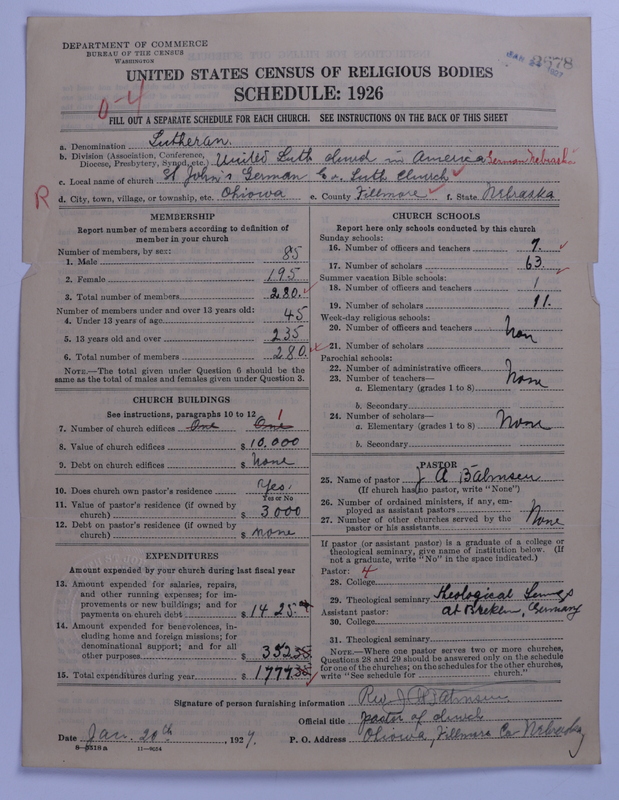 DEPARTMENT OF COMMERCE
BUREAU OF THE CENSUS
WASHINGTON
UNITED STATES CENSUS OF RELIGIOUS BODIES
SCHEDULE: 1926
0-4
FILL OUT A SEPARATE SCHEDULE FOR EACH CHURCH. SEE INSTRUCTIONS ON THE BACK OF THIS SHEET
a. Denomination Lutheran.
b. Division (Association, Conference, Diocese, Presbytery, Synod, etc.) United Luth church in America German Nebraska
c. Local name of church St John's German Ev. Luth Church
R
d. City, town, village, or township, etc. Ohiowa e. County Fillmore f. State Nebraska
MEMBERSHIP
Report number of members according to definition of
member in your church
Number of members, by sex:
1. Male 85
2. Female 195
3. Total number of members 280.
Number of members under and over 13 years old:
4. Under 13 years of age 45
5. 13 years old and over 235
6. Total number of members 280.
NOTE.—The total given under Question 6 should be the
same as the total of males and females given under Question 3.
CHURCH BUILDINGS
See instructions, paragraphs 10 to 12
7. Number of church edifices One One 1
8. Value of church edifices $ 10.000
9. Debt on church edifices $ none
10. Does church own pastor's residence Yes.
Yes or No
11. Value of pastor's residence (if owned by
church) $ 3000
12. Debt on pastor's residence (if owned by
church) $ none
EXPENDITURES
Amount expended by your church during last fiscal year
13. Amount expended for salaries, repairs,
and other running expenses; for im-
provements or new buildings; and for
payments on church debt $ 1425
14. Amount expended for benevolences, in-
cluding home and foreign missions; for
denominational support; and for all
other purposes $ 352
15. Total expenditures during year $ 1777
CHURCH SCHOOLS
Report here only schools conducted by this church
Sunday schools:
16. Number of officers and teachers 7.
17. Number of scholars 63.
Summer vacation Bible schools:
18. Number of officers and teachers 1
19. Number of scholars 11.
Week-day religious schools:
20. Number of officers and teachers
21. Number of scholars non
Parochial schools:
22. Number of administrative officers
23. Number of teachers—
a. Elementary (grades 1 to 8) none
b. Secondary
24. Number of scholars—
a. Elementary (grades 1 to 8) None
b. Secondary
PASTOR
25. Name of pastor J
(If church has no pastor, write "None")
26. Number of ordained ministers, if any, em-
ployed as assistant pastors
27. Number of other churches served by the
pastor or his assistants None
If pastor (or assistant pastor) is a graduate of a college or
theological seminary, give name of institution below. (If
not a graduate, write "No" in the space indicated.)
Pastor: 4
28. College
29. Theological seminary theological
Assistant pastor: at Breklum, Germany
30. College
31. Theological seminary
NOTE.—Where one pastor serves two or more churches,
Questions 28 and 29 should be answered only on the schedule
for one of the churches; on the schedules for the other churches,
write "See schedule for church."
Signature of person furnishing information Rev. J
Official title pastor of church
Date Jan. 20th, 1927. P. O. Address Ohiowa, Fillmore Co Nebraska
8-5318a 11-9024